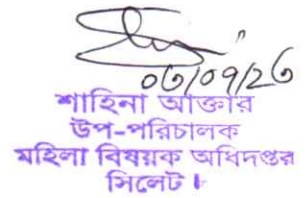 ০৩/০৭/২৩
শাহিনা আক্তার
উপ-পরিচালক
মহিলা বিষয়ক অধিদপ্তর
সিলেট ৷